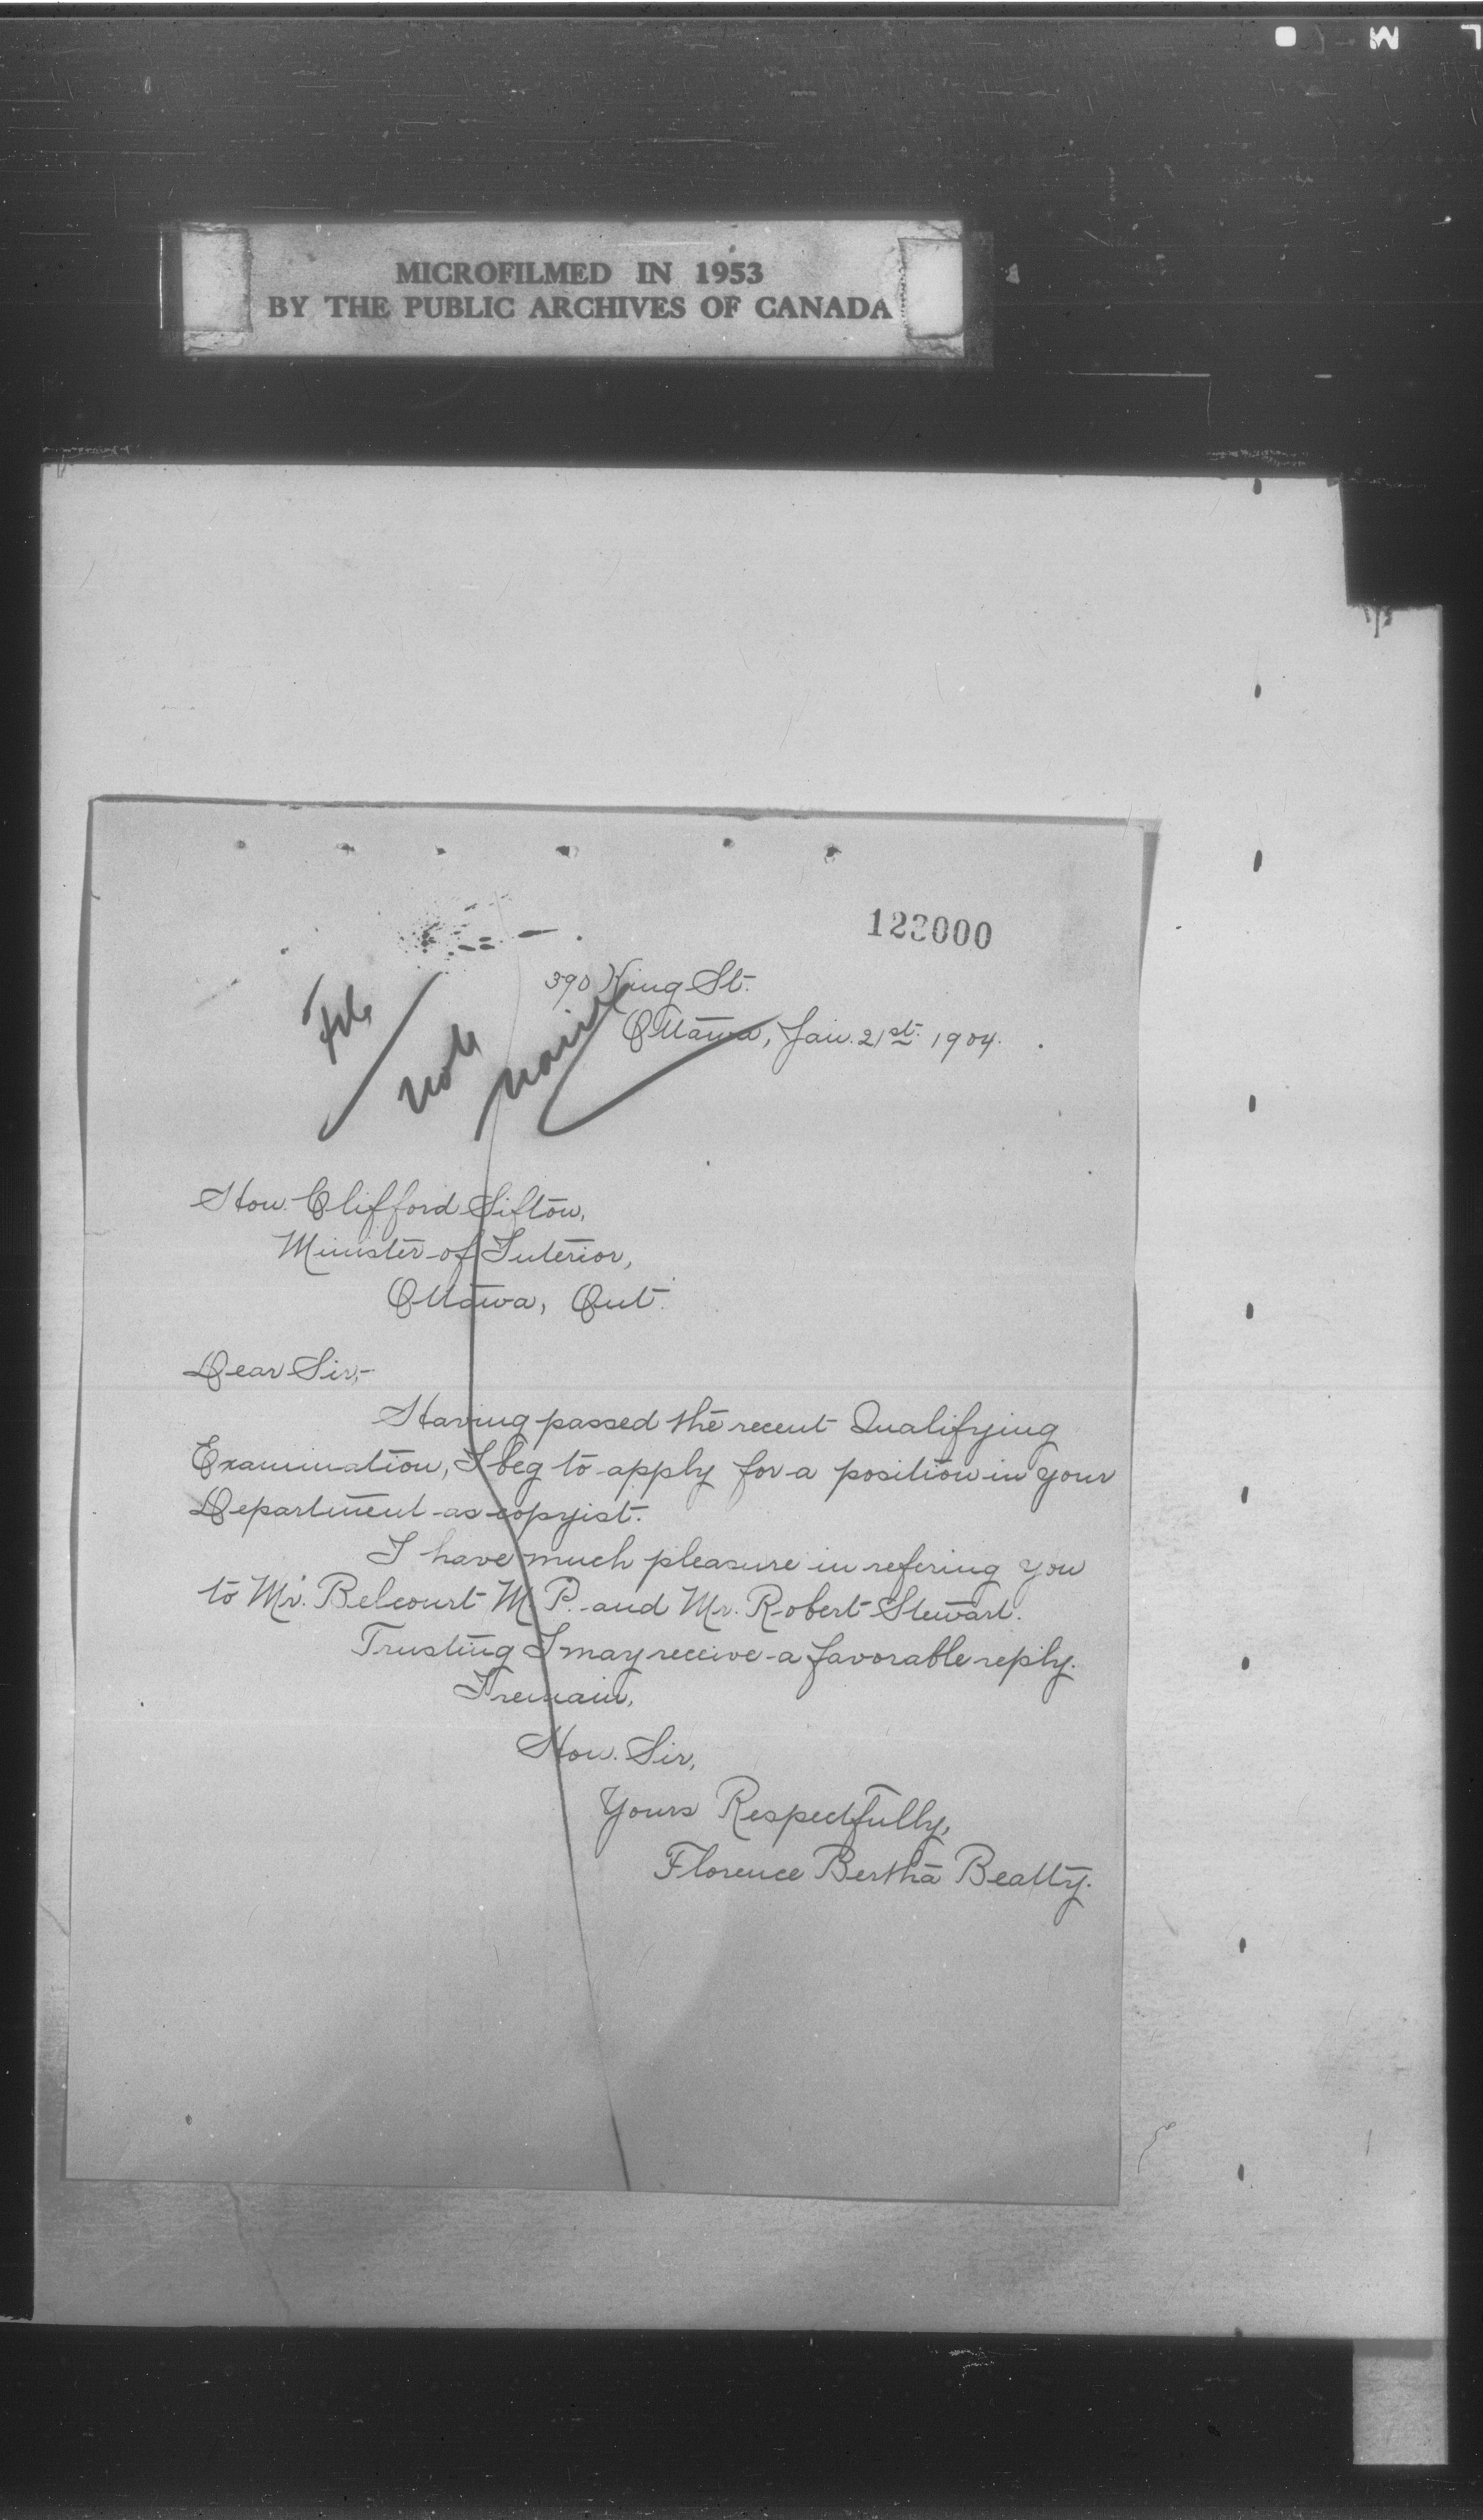 MICROFILMED IN 1953
BY THE PUBLIC ARCHIVES OF CANADA
123000
390 King St.
Ottawa, Jan. 21st. 1904.
File
note
name
Hon. Clifford Sifton,
Minister of Interior,
Ottawa, Ont.
Dear Sir,-
Having passed the recent Qualifying
Examination, I beg to apply for a position in your
Department as copyist.
I have much pleasure in refering you
to Mr. Belcourt M.P. and Mr. Robert Stewart.
Trusting I may receive a favorable reply.
I remain,
Hon. Sir,
Yours Respectfully,
Florence Bertha Beatty.